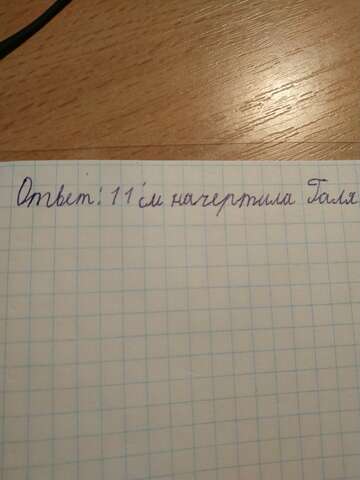 Ответ: 11 см начертила Галя